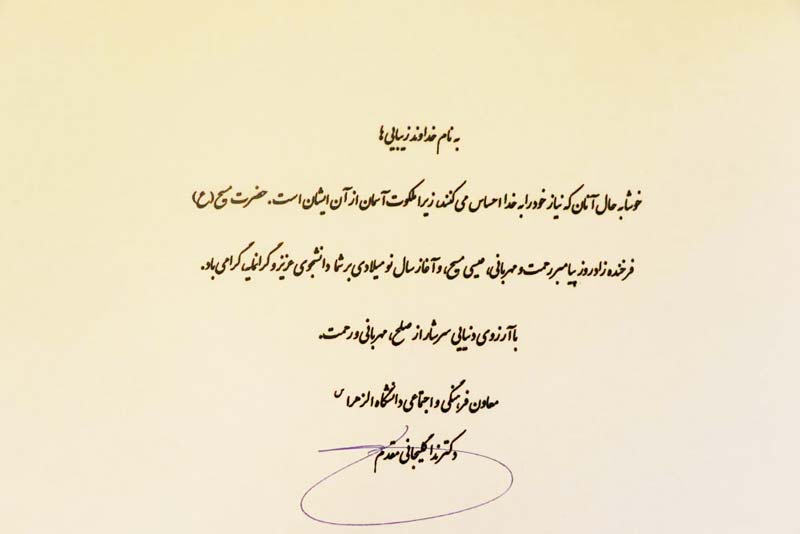 به نام خداوند زیبایی ها
خوشا به حال آنان که نیاز خود را به خدا احساس می کنند، زیرا ملکوت آسمان از آن ایشان است. حضرت مسیح (ع)
فرخنده زادروز پیامبر رحمت و مهربانی، عیسی مسیح، و آغاز سال نو میلادی بر شما دانشجوی عزیز و گرانمایه، گرامی باد.
با آرزوی دنیایی سرشار از صلح، مهربانی و رحمت.
معاون فرهنگی و اجتماعی دانشگاه الزهرا س
دکتر ندا گلیجانی مقدم